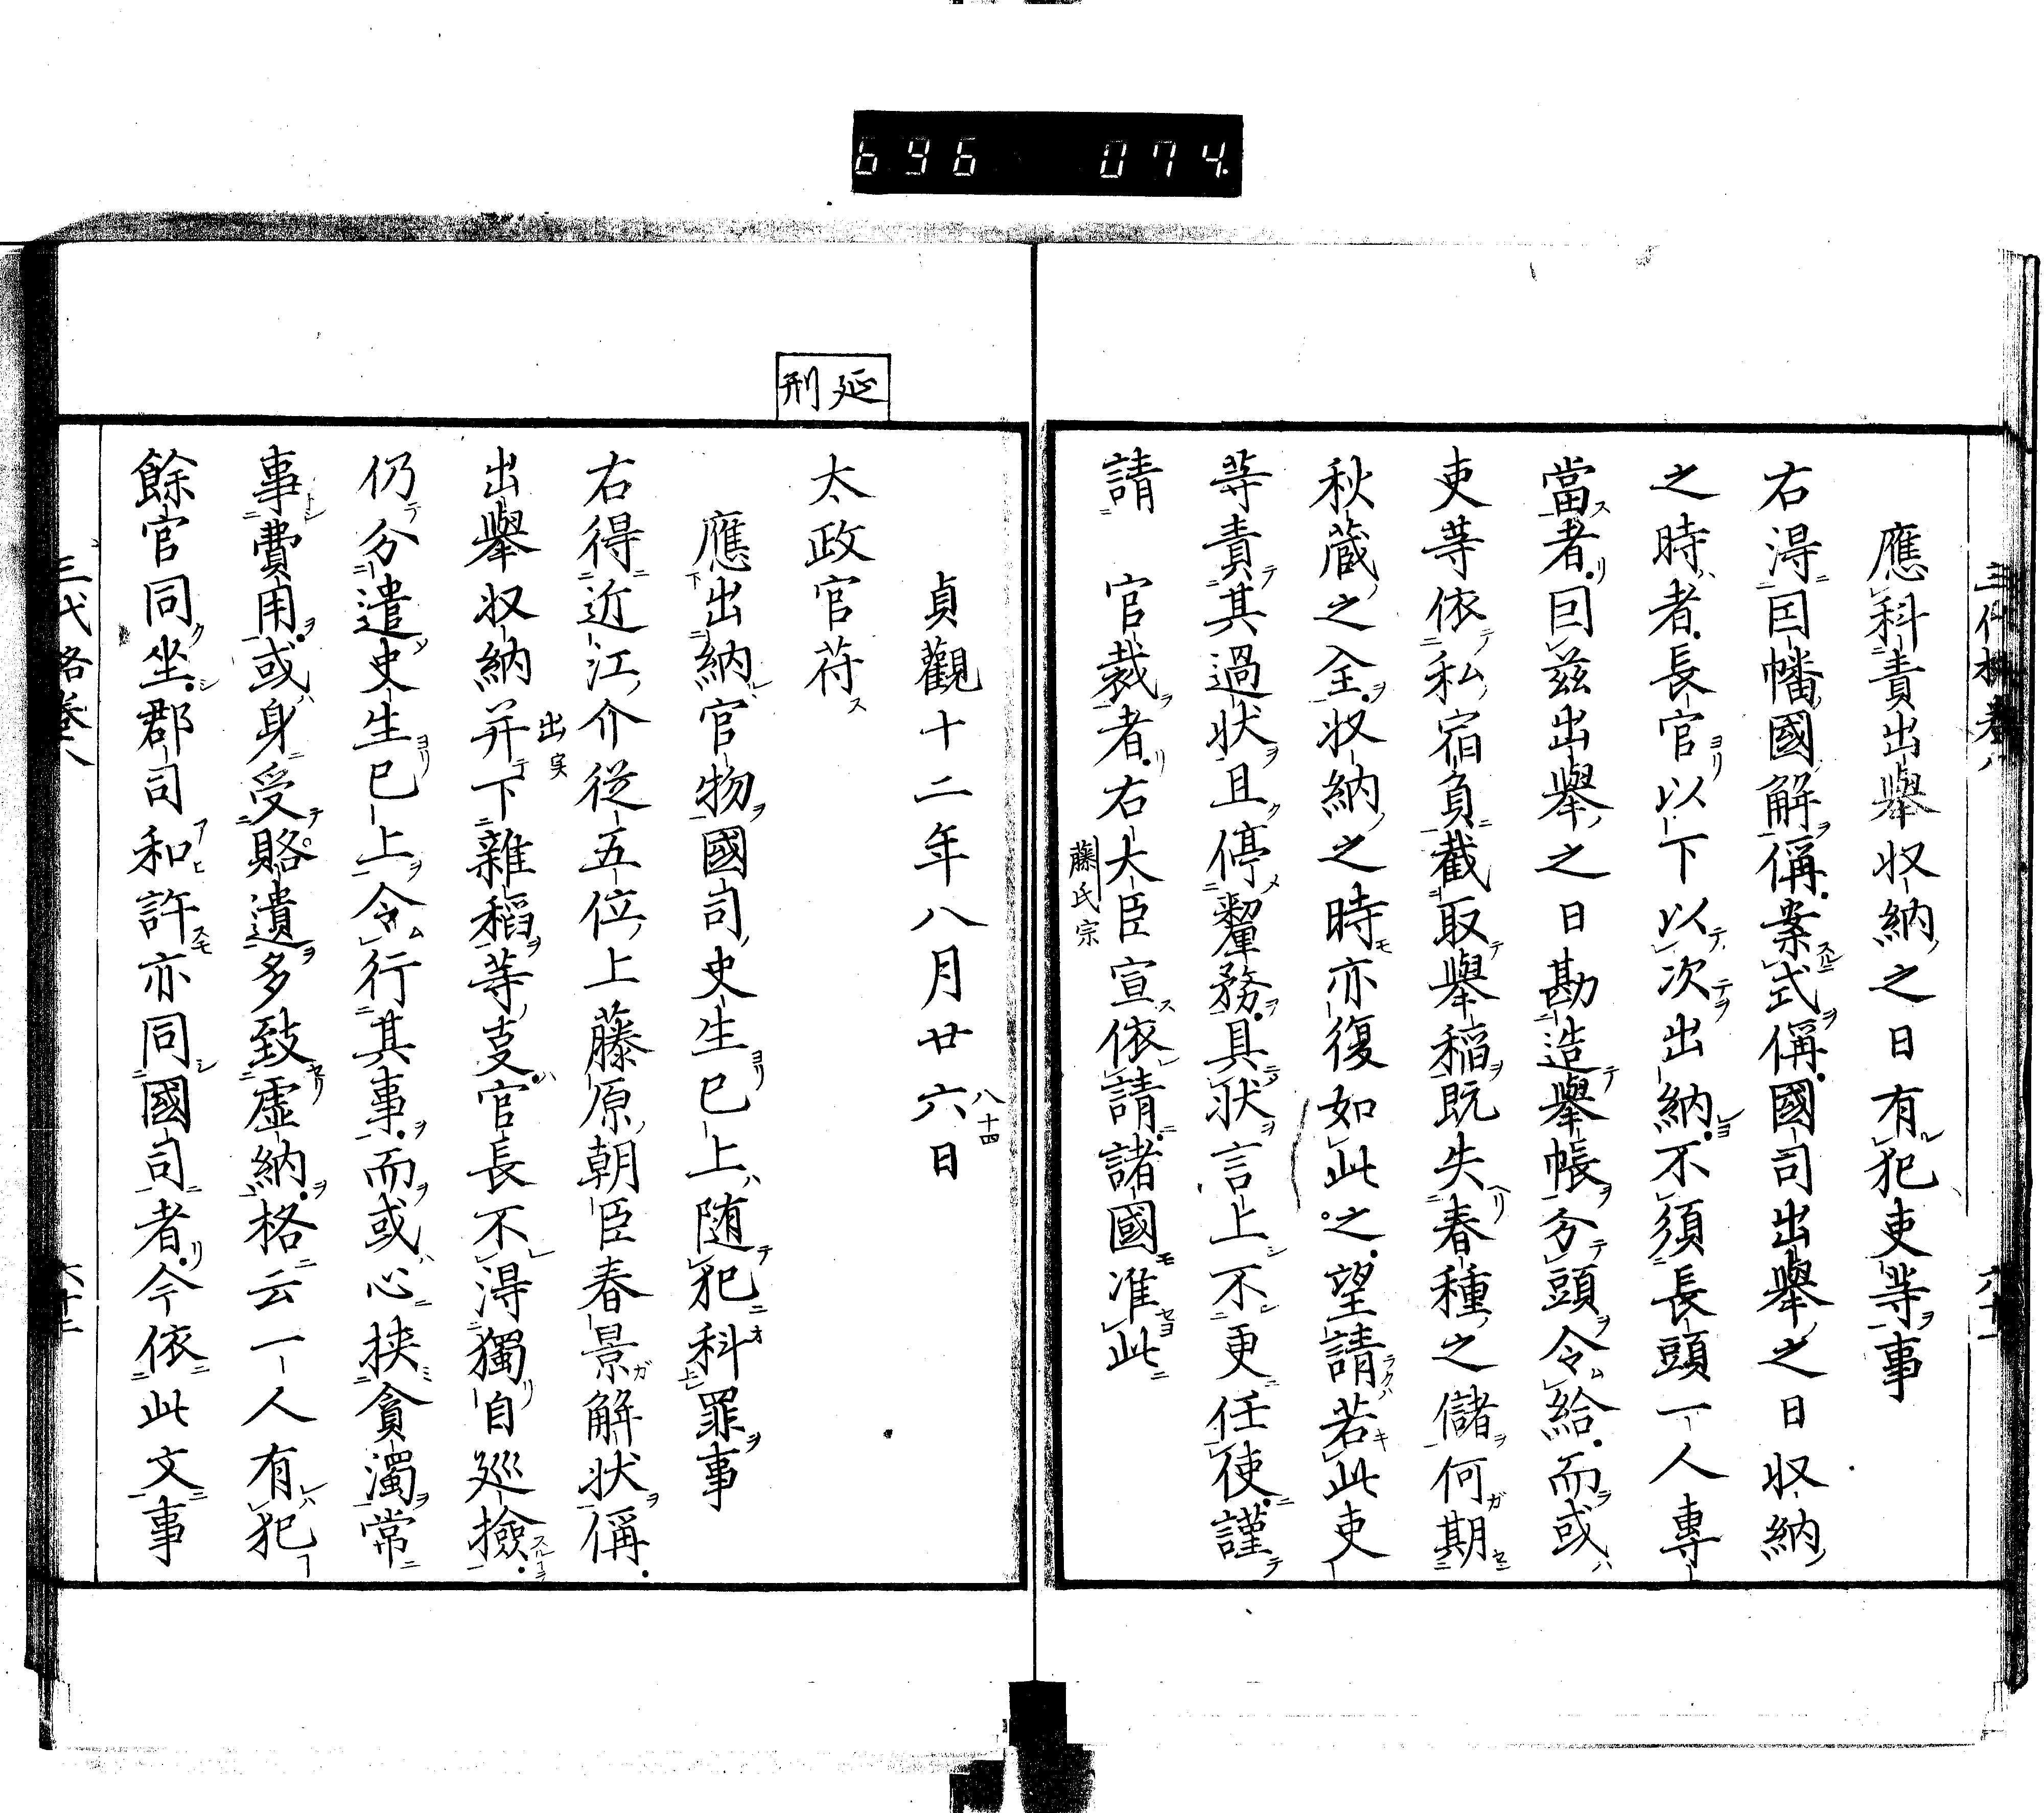 696 074.
應科責出擧收納之日有犯吏等事
右得因幡國解稱案式偁國司出擧之日收納
之時者長官以下以次出納不須長頭一人專
當者因茲出擧之日勘造擧帳分頭令給而或
吏等依私宿負截取擧稲既失春種之儲何期
秋蔵之全收納之時亦復如此之望請若此吏
等責其過状且停釐務具状言上不更任使謹
請 官裁者右大臣宣依請諸國准此
藤氏宗
貞觀十二年八月廿六日
八十四
延刑
太政官苻
應出納官物國司史生已上随犯科罪事
右得近江介從五位上藤原朝臣春景解状偁
出擧收納并下雜稻等支官長不得獨自巡撿
出実
仍分遣史生已上令行其事而或心挟貪濁常
事費用或身受賂遺多致虚納格云一人有犯
餘官同坐郡司和許亦同國司者今依此文事
三代格卷八